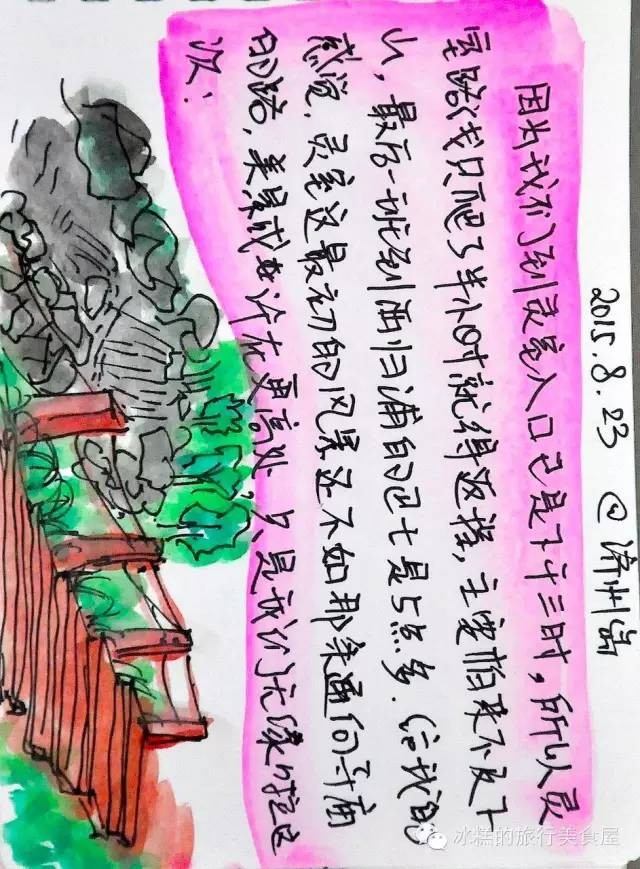 2015.8.23 @济州岛
因为我们到灵室入口已是下午三时，所以灵
室路线只爬了半小时就得返程，主要怕来不及下
山，最后一班到西归浦的巴士是5点多.给我的
感觉，灵室这最初的风景还不如那条通向寺庙
的路，美景或许在更高处 只是我们无缘啦这
次！
冰糕的旅行美食屋